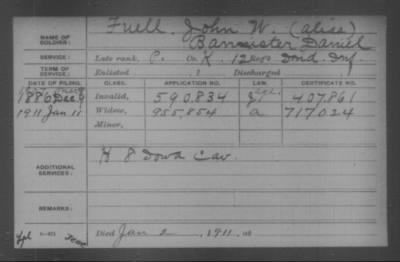 NAME OF SOLDIER: Fuell, John W. (alias)
Bannister, Daniel
SERVICE: Late rank, P. Co. K, 12 Reg't Ind. Inf.
TERM OF SERVICE: Enlisted , 1 Discharged
DATE OF FILING. CLASS. APPLICATION NO. LAW. CERTIFICATE NO.
1886 Dec 9 Invalid, 590,834 407,861
1911 Jan 11 Widow, 955,854 a 717,024
Minor,
ADDITIONAL SERVICES: H 8 Iowa Cav
REMARKS:
Died Jan 2, 1911, at